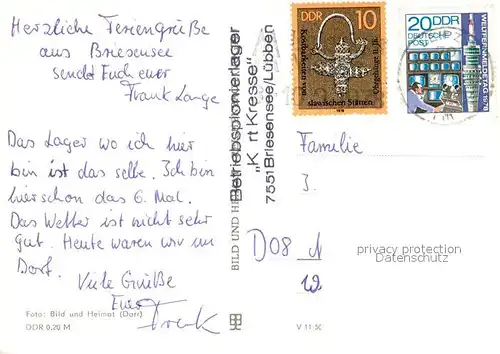 Herzliche Feriengrüße
aus Briesensee
sendet Euch euer
Frank Lange
Das Lager wo ich hier
bin ist das selbe. Ich bin
hier schon das 6. Mal.
Das Wetter ist nicht sehr
gut. Heute waren wir im
Dorf.
Viele Grüße
Euer
Frank
Foto: Bild und Heimat (Darr)
DDR 0,20 M
BILD UND HE
Betriebspionierlager
"K rt Kresse"
7551 Briesensee/Lübben
DDR 10
Kostbarkeiten von
slawischen Stätten
Ohrgehänge 11. Jh.
20 DDR
DEUTSCHE
POST
WELTFERNMELDETAG 1978
Familie
J.
D08 N
privacy protection
Datenschutz
V 11-50